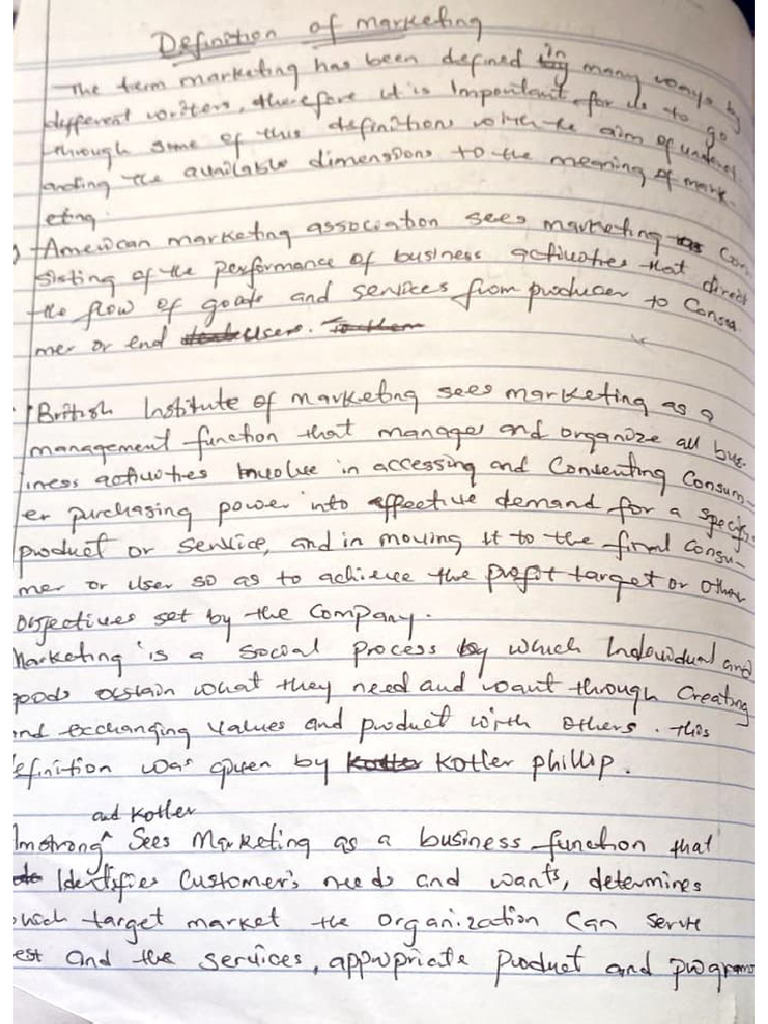 Definition of marketing
The term marketing has been defined in many ways by
different writers, therefore it is Important for us to go
through some of this definition with the aim of underst
anding the available dimensions to the meaning of mark-
eting.
American marketing association sees marketing as Con
sisting of the performance of business activities that direct
the flow of goods and services from producer to Consu
mer or end users.
British Institute of marketing sees marketing as a
management function that manage and organize all bus-
iness activities Involve in accessing and Converting Consum-
er purchasing power into effective demand for a specific
product or service, and in moving it to the final Consu-
mer or user so as to achieve the profit target or other
objectives set by the company.
Marketing is a social process by which Individual and
obtain what they need and want through Creating
and exchanging values and product with others. This
efinition was given by Kotler phillip.
and Kotler
Amstrong^ Sees Marketing as a business function that
Identifies Customer's needs and wants, determines
which target market the organization Can serve
est and the services, appropriate product and programs